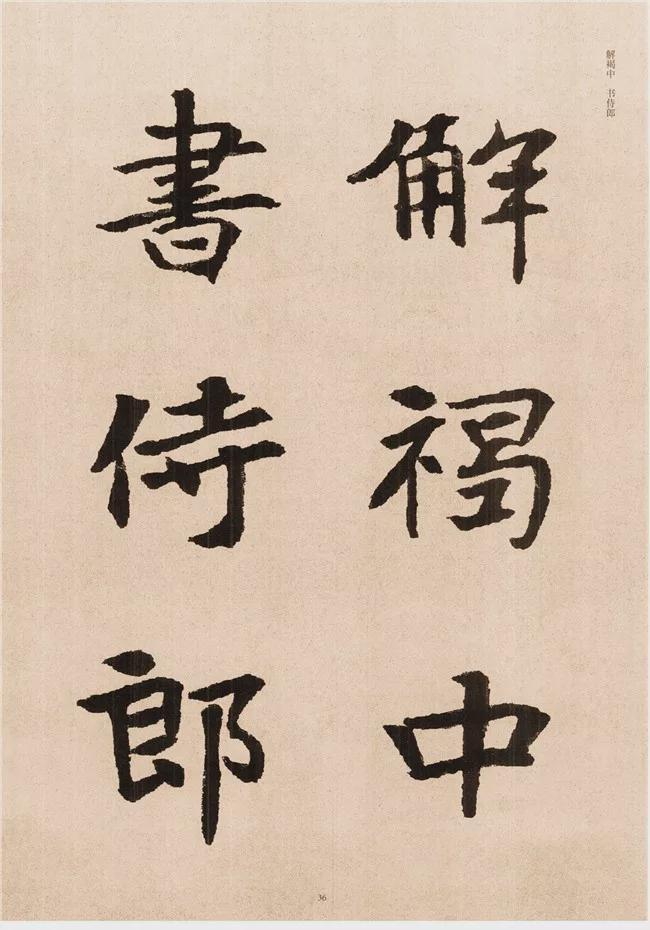 解褐中 书侍郎
解褐中
書侍郎
36